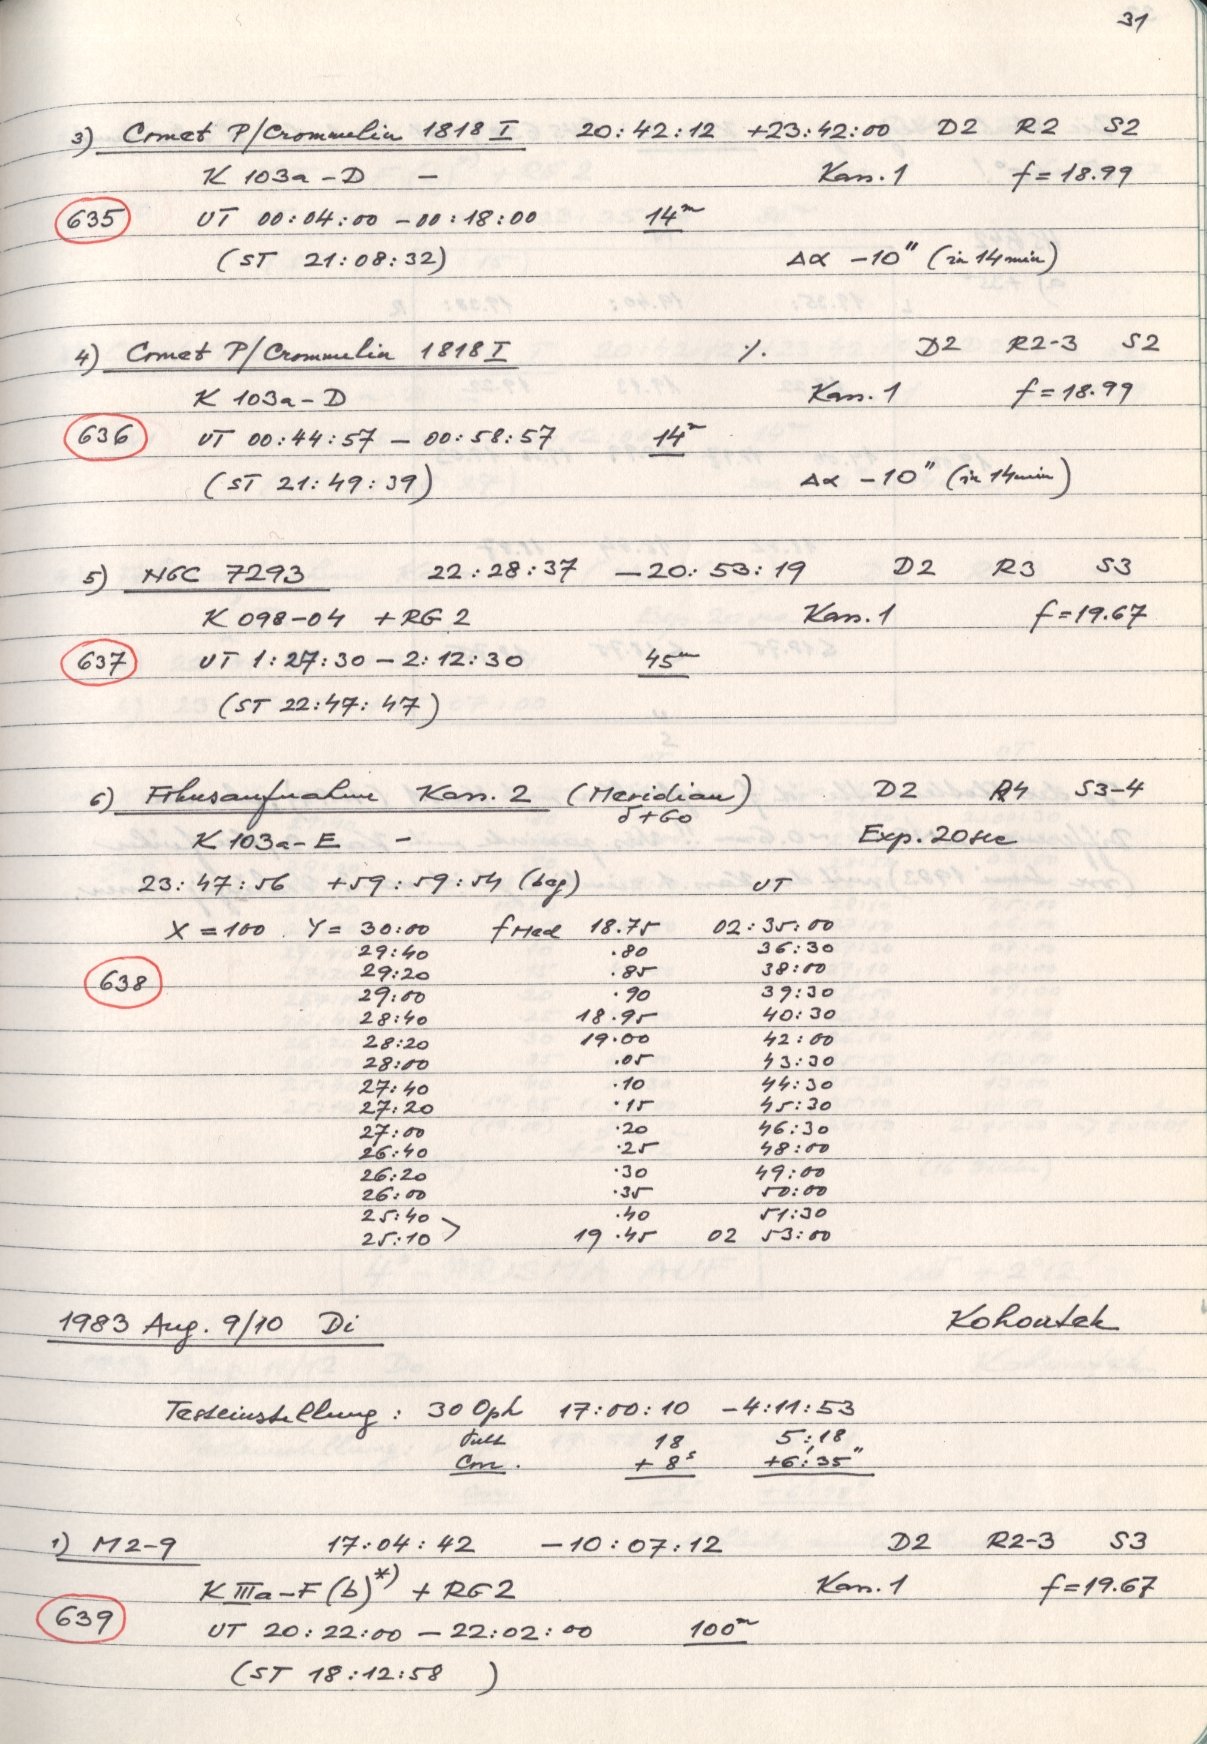 31
3) Comet P/Crommelin 1818 I 20:42:12 +23:42:00 D2 R2 S2
K 103a-D - Kass. 1 f=18.99
635 UT 00:04:00 - 00:18:00 14ᵐ
(ST 21:08:32) Δα -10" (in 14min)
4) Comet P/Crommelin 1818 I ·/. D2 R2-3 S2
K 103a-D Kass. 1 f=18.99
636 UT 00:44:57 - 00:58:57 14ᵐ
(ST 21:49:39) Δα -10" (in 14min)
5) NGC 7293 22:28:37 -20:53:19 D2 R3 S3
K 098-04 +RG2 Kass. 1 f=19.67
637 UT 1:27:30 - 2:12:30 45ᵐ
(ST 22:47:47)
6) Fokusaufnahme Kass. 2 (Meridian) D2 R4 S3-4
δ+60
K 103a-E - Exp. 20sec
23:47:56 +59:59:54 (beg) UT
X=100 Y= 30:00 f Med 18.75 02:35:00
29:40 .80 36:30
29:20 .85 38:00
29:00 .90 39:30
28:40 18.95 40:30
638 28:20 19.00 42:00
28:00 .05 43:30
27:40 .10 44:30
27:20 .15 45:30
27:00 .20 46:30
26:40 .25 48:00
26:20 .30 49:00
26:00 .35 50:00
25:40 .40 51:30
25:10 > 19.45 02 53:00
1983 Aug. 9/10 Di Kohoutek
Testeinstellung: 30 Oph 17:00:10 -4:11:53
18 5:18
Corr. +8ˢ +6':35"
1) M2-9 17:04:42 -10:07:12 D2 R2-3 S3
K IIIa-F (b)*) + RG2 Kass. 1 f=19.67
639 UT 20:22:00 - 22:02:00 100ᵐ
(ST 18:12:58 )